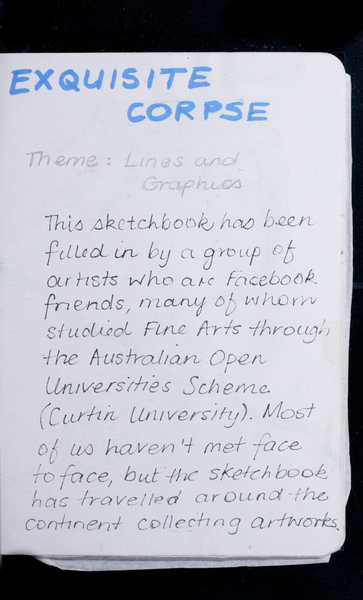 EXQUISITE
CORPSE
Theme: Lines and
Graphics
This sketchbook has been
filled in by a group of
artists who are Facebook
friends, many of whom
studied Fine Arts through
the Australian Open
Universities Scheme
(Curtin University). Most
of us haven't met face
to face, but the sketchbook
has travelled around the
continent collecting artworks.